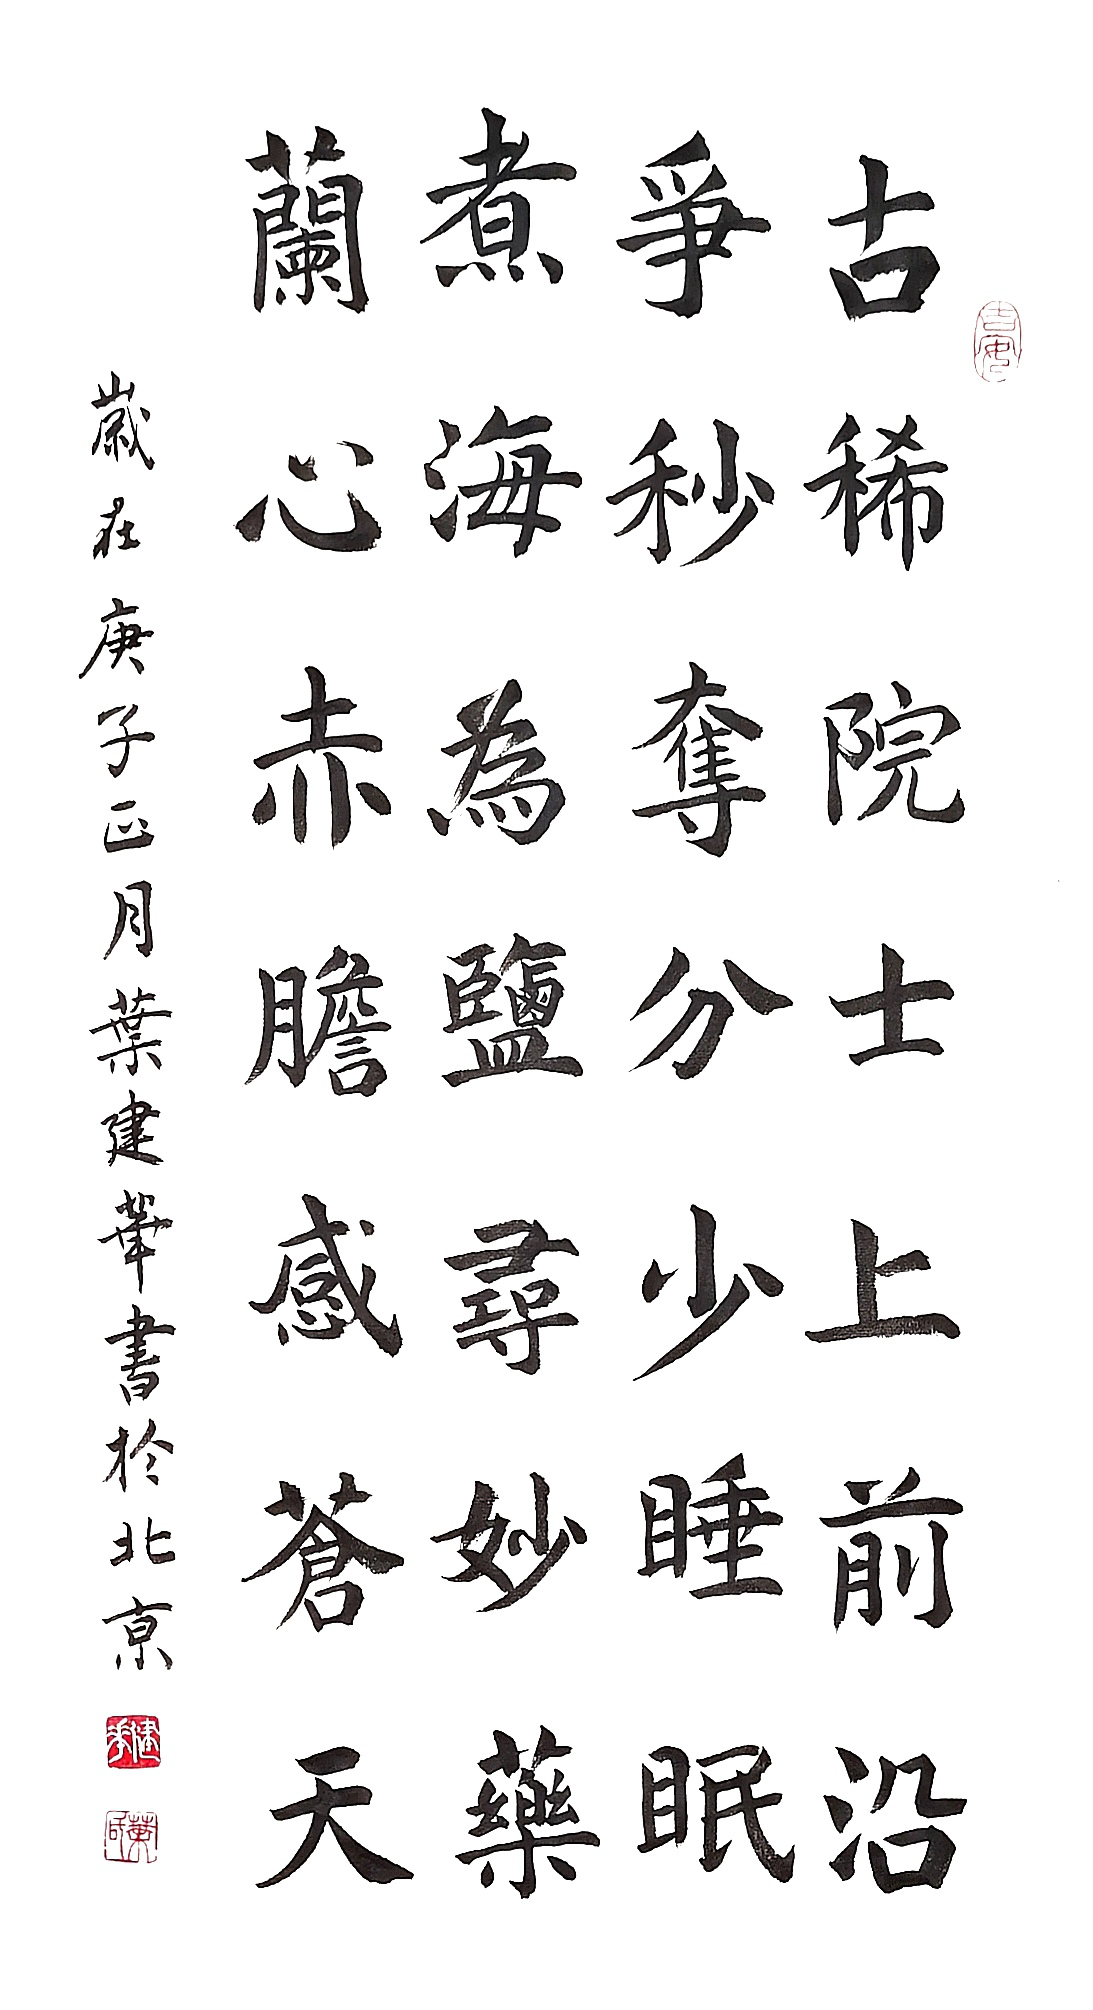 古稀院士上前沿
爭秒奪分少睡眠
煮海為鹽尋妙藥
蘭心赤膽感蒼天
歲在庚子正月葉建華書於北京